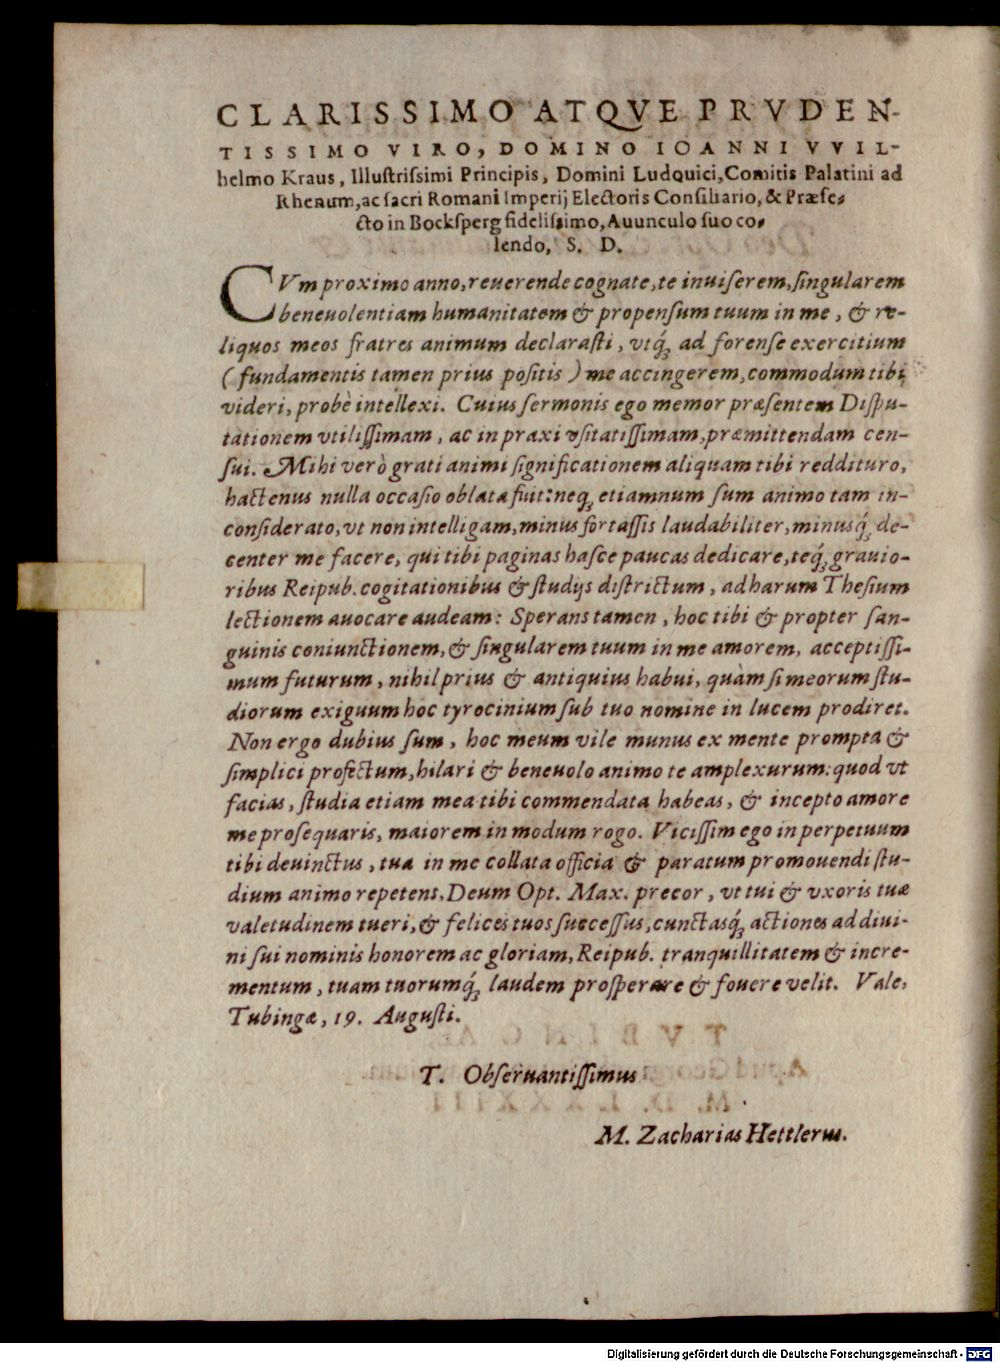 CLARISSIMO ATQVE PRVDEN-
TISSIMO VIRO, DOMINO IOANNI VVIL-
helmo Kraus, Illuſtriſsimi Principis, Domini Ludouici, Comitis Palatini ad
Rhenum, ac ſacri Romani Imperij Electoris Conſiliario, & Præfe-
cto in Bockſperg fideliſsimo, Auunculo ſuo co-
lendo, S. D.
CVm proximo anno, reuerende cognate, te inuiſerem, ſingularem
beneuolentiam humanitatem & propenſum tuum in me, & re-
liquos meos fratres animum declaraſti, vtq́ꝫ ad forenſe exercitium
(fundamentis tamen prius poſitis) me accingerem, commodum tibi
videri, probè intellexi. Cuius ſermonis ego memor præſentem Diſpu-
tationem vtiliſſimam, ac in praxi vſitatiſſimam, præmittendam cen-
ſui. Mihi verò grati animi ſignificationem aliquam tibi reddituro,
hactenus nulla occaſio oblata fuit: neqꝫ etiamnum ſum animo tam in-
conſiderato, vt non intelligam, minus fortaſſis laudabiliter, minusq́ꝫ de-
center me facere, qui tibi paginas haſce paucas dedicare, teq́ꝫ grauio-
ribus Reipub. cogitationibus & ſtudijs diſtrictum, ad harum Theſium
lectionem auocare audeam: Sperans tamen, hoc tibi & propter ſan-
guinis coniunctionem, & ſingularem tuum in me amorem, acceptiſſi-
mum futurum, nihil prius & antiquius habui, quàm ſi meorum ſtu-
diorum exiguum hoc tyrocinium ſub tuo nomine in lucem prodiret.
Non ergo dubius ſum, hoc meum vile munus ex mente prompta &
ſimplici profectum, hilari & beneuolo animo te amplexurum: quod vt
facias, ſtudia etiam mea tibi commendata habeas, & incepto amore
me proſequaris, maiorem in modum rogo. Viciſſim ego in perpetuum
tibi deuinctus, tua in me collata officia & paratum promouendi ſtu-
dium animo repetens, Deum Opt. Max. precor, vt tui & vxoris tuæ
valetudinem tueri, & felices tuos ſucceſſus, cunctasq́ꝫ actiones ad diui-
ni ſui nominis honorem ac gloriam, Reipub. tranquillitatem & incre-
mentum, tuam tuorumq́ꝫ laudem proſperare & fouere velit. Vale,
Tubingæ, 19. Auguſti.
T. Obſeruantiſſimus
M. Zacharias Hettlerus.
Digitalisierung gefördert durch die Deutsche Forschungsgemeinschaft - DFG